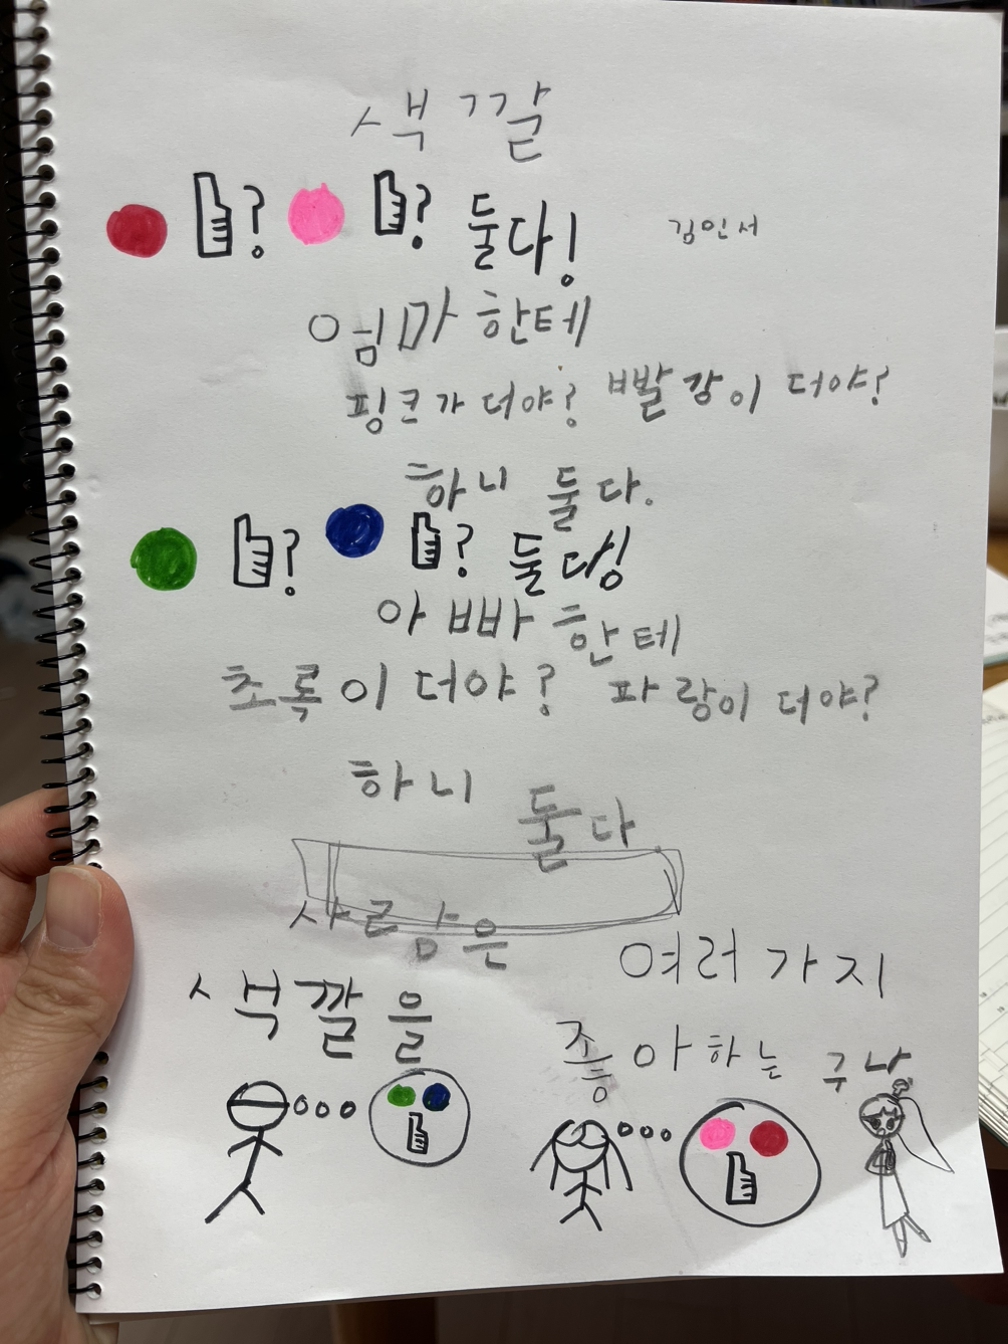 색깔
? ? 둘다!
김인서
엄마 한테
핑크가 더야? 빨강이 더야?
하니 둘다.
? ? 둘다!
아빠 한테
초록이 더야? 파랑이 더야?
하니 둘다
사람은 여러가지
색깔을 좋아하는구나